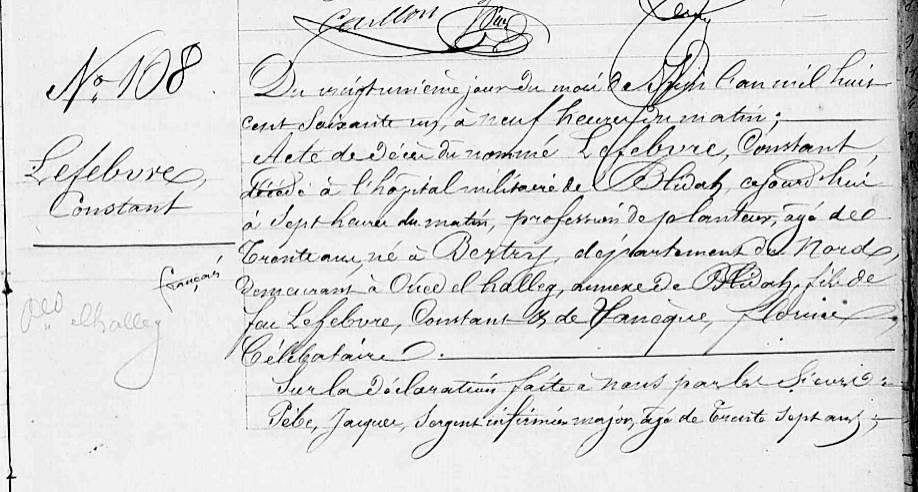 No. 108
Lefebvre,
Constant
français
Oued
el halleg
Du vingtunième jour du mois de Juin l'an mil huit
cent soixante un, à neuf heures du matin ;
Acte de décès du nommé Lefebvre, Constant
décédé à l'hôpital militaire de Blidah, cejourd'hui
à Sept heures du matin, profession de planteur, âgé de
Trente ans, né à Bertry, département du Nord,
demeurant à Oued el halleg, annexe de Blidah, fils de
feu Lefebvre, Constant & de Hanecque,
Célibataire.
Sur la déclaration faite à nous par les Sieurs :
Pèbe, Jacques, Sergent infirmier major, âgé de Trente Sept ans ;